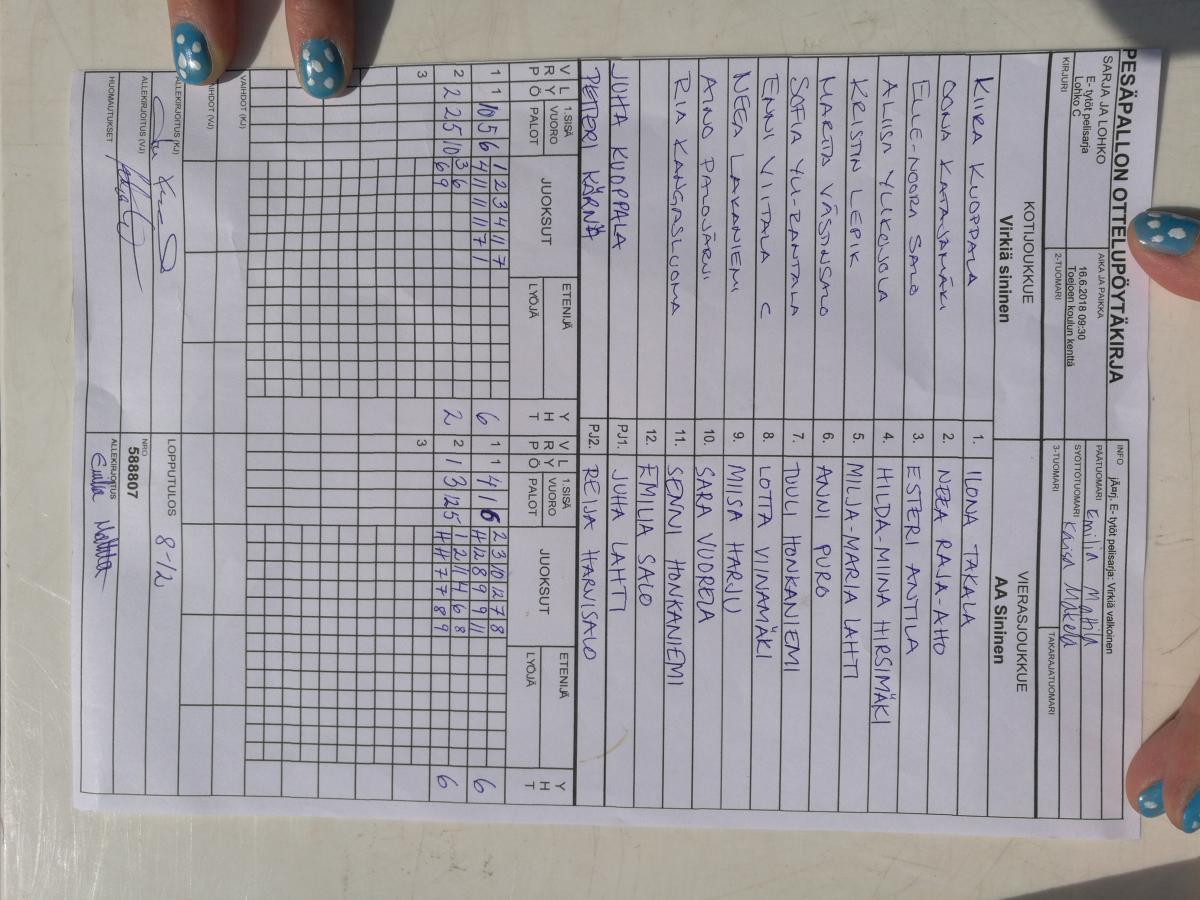 PESÄPALLON OTTELUPÖYTÄKIRJA
SARJA JA LOHKO
E- tytöt pelisarja
Lohko C
AIKA JA PAIKKA
16.6.2018 09:30
Toejoen koulun kenttä
INFO jÄ¤rj. E- tytöt pelisarja: Virkiä valkoinen
PÄÄTUOMARI Emilia Mattila
SYÖTTÖTUOMARI Kaisa Mäkelä
KIRJURI
2-TUOMARI
3-TUOMARI
TAKARAJATUOMARI
KOTIJOUKKUE
Virkiä sininen
VIERASJOUKKUE
AA Sininen
KIIRA KUOPPALA 1. ILONA TAKALA
OONA KATAJAMÄKI 2. NEEA RAJA-AHO
ELLE-NOORA SALO 3. ESTERI ANTILA
ALIISA YLIKOJOLA 4. HILDA-MIINA HIRSIMÄKI
KRISTIN LEPIK 5. MILJA-MARIA LAHTI
MARITA VÄSTINSALO 6. ANNI PURO
SOFIA YLI-RANTALA 7. TUULI HONKANIEMI
ENNI VIITALA C 8. LOTTA VIINAMÄKI
NEEA LAKANIEMI 9. MIISA HARJU
AINO PALOJÄRVI 10. SARA VUORELA
RIA KANGASLUOMA 11. SENNI HONKANIEMI
12. EMILIA SALO
JUHA KUOPPALA PJ1. JUHA LAHTI
PETTERI KÄRNÄ PJ2. REIJA HARVISALO
V L 1.SISÄ JUOKSUT ETENIJÄ Y V L 1.SISÄ JUOKSUT ETENIJÄ Y
R Y VUORO H R Y VUORO H
P Ö PALOT LYÖJÄ T P Ö PALOT LYÖJÄ T
1 1 10 5 6 1 2 3 4 11 7 6 1 4 1 6 2 3 10 12 7 8 6
4 11 11 11 7 1 H 12 8 9 9 11
2 2 2 5 10 3 6 2 2 1 3 12 5 1 2 11 4 6 8 6
6 9 H H 7 7 8 9
3 3
VAIHDOT (KJ)
VAIHDOT (VJ)
ALLEKIRJOITUS (KJ)
LOPPUTULOS 8-12
ALLEKIRJOITUS (VJ)
NRO
588807
HUOMAUTUKSET
ALLEKIRJOITUS
Emilia Mattila